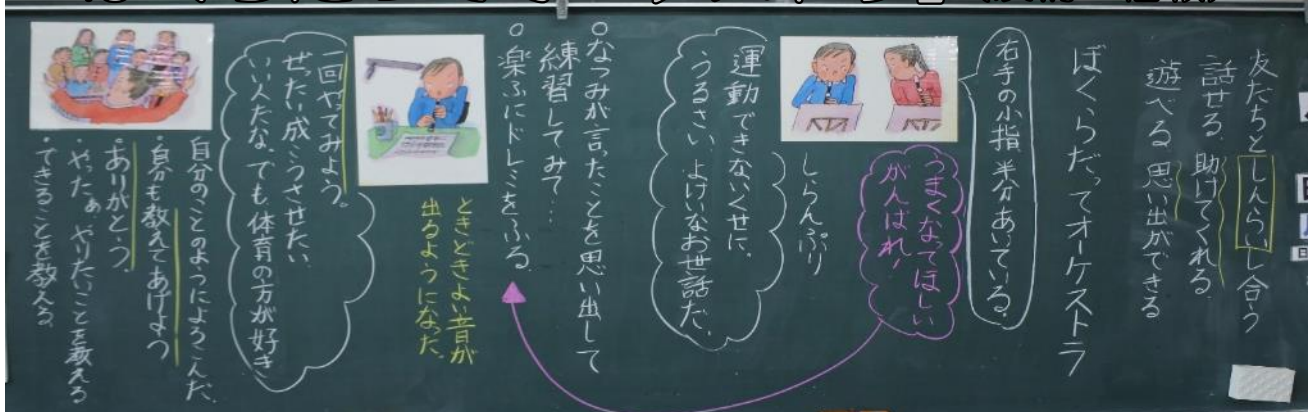 友だちとしんらいし合う
話せる 助けてくれる
遊べる 思い出ができる
ぼくらだってオーケストラ
右手の小指 半分あいている。
うまくなってほしい
がんばれ!
しらんぷり
運動できないくせに、
うるさい、よけいなお世話だ、
○なつみが言ったことを思い出して
練習してみて…
○楽ふにドレミをふる
ときどきよい音が
出るようになった
一回やってみよう。
ぜったい成こうさせたい
いい人たな。でも、体育の方が好き
自分のことのようによろこんだ、
・自分も教えてあげよう
・ありがとう。
・やったぁ、やりたいことを教える
・できることを教える